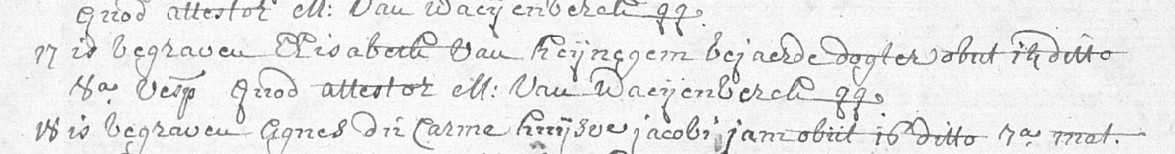 Quod attestor M: Van Waeijenberch qq.
17 is begraven Elisabeth Van Heijnegem bejaerde dogter obiit 15 ditto
8a. Vesp Quod attestor M: Van Waeijenberch qq.
18 is begraven Agnes du Carme huijsve jacobi jam obiit 16 ditto 7a. mat.